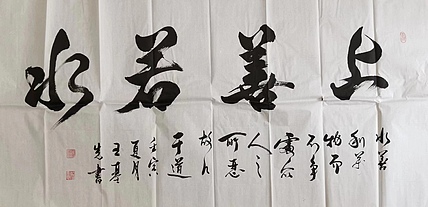 上善若水
水善
利萬
物而
不争
處众
人之
所惡
故几
于道
壬寅
夏月
王基
書